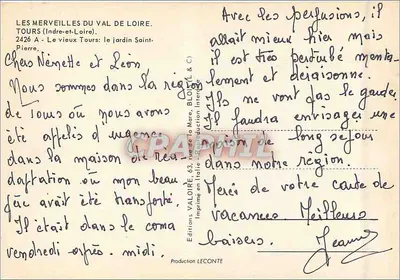 LES MERVEILLES DU VAL DE LOIRE.
TOURS (Indre-et-Loire).
2426 A - Le vieux Tours: le jardin Saint-
Pierre.
Chers Nénette et Léon
Nous sommes dans la région
de Tours où nous avons
été appelés d'urgence
dans la maison de réa-
daptation où mon beau
père avait été transporté.
Il était dans le coma
vendredi après-midi.
Editions VALOIRE, 63, rue de la Mère, BLOIS (L. & C)
Imprimé en Italie - Reproduction Interdite
Avec les perfusions, il
allait mieux hier mais
il est très perturbé menta-
lement et déraisonne.
Ils ne vont pas le garder
Il faudra envisager une
maison de long séjour
dans notre région.
Merci de votre carte de
vacances Meilleurs
baisers. Jeanne
Production LECONTE